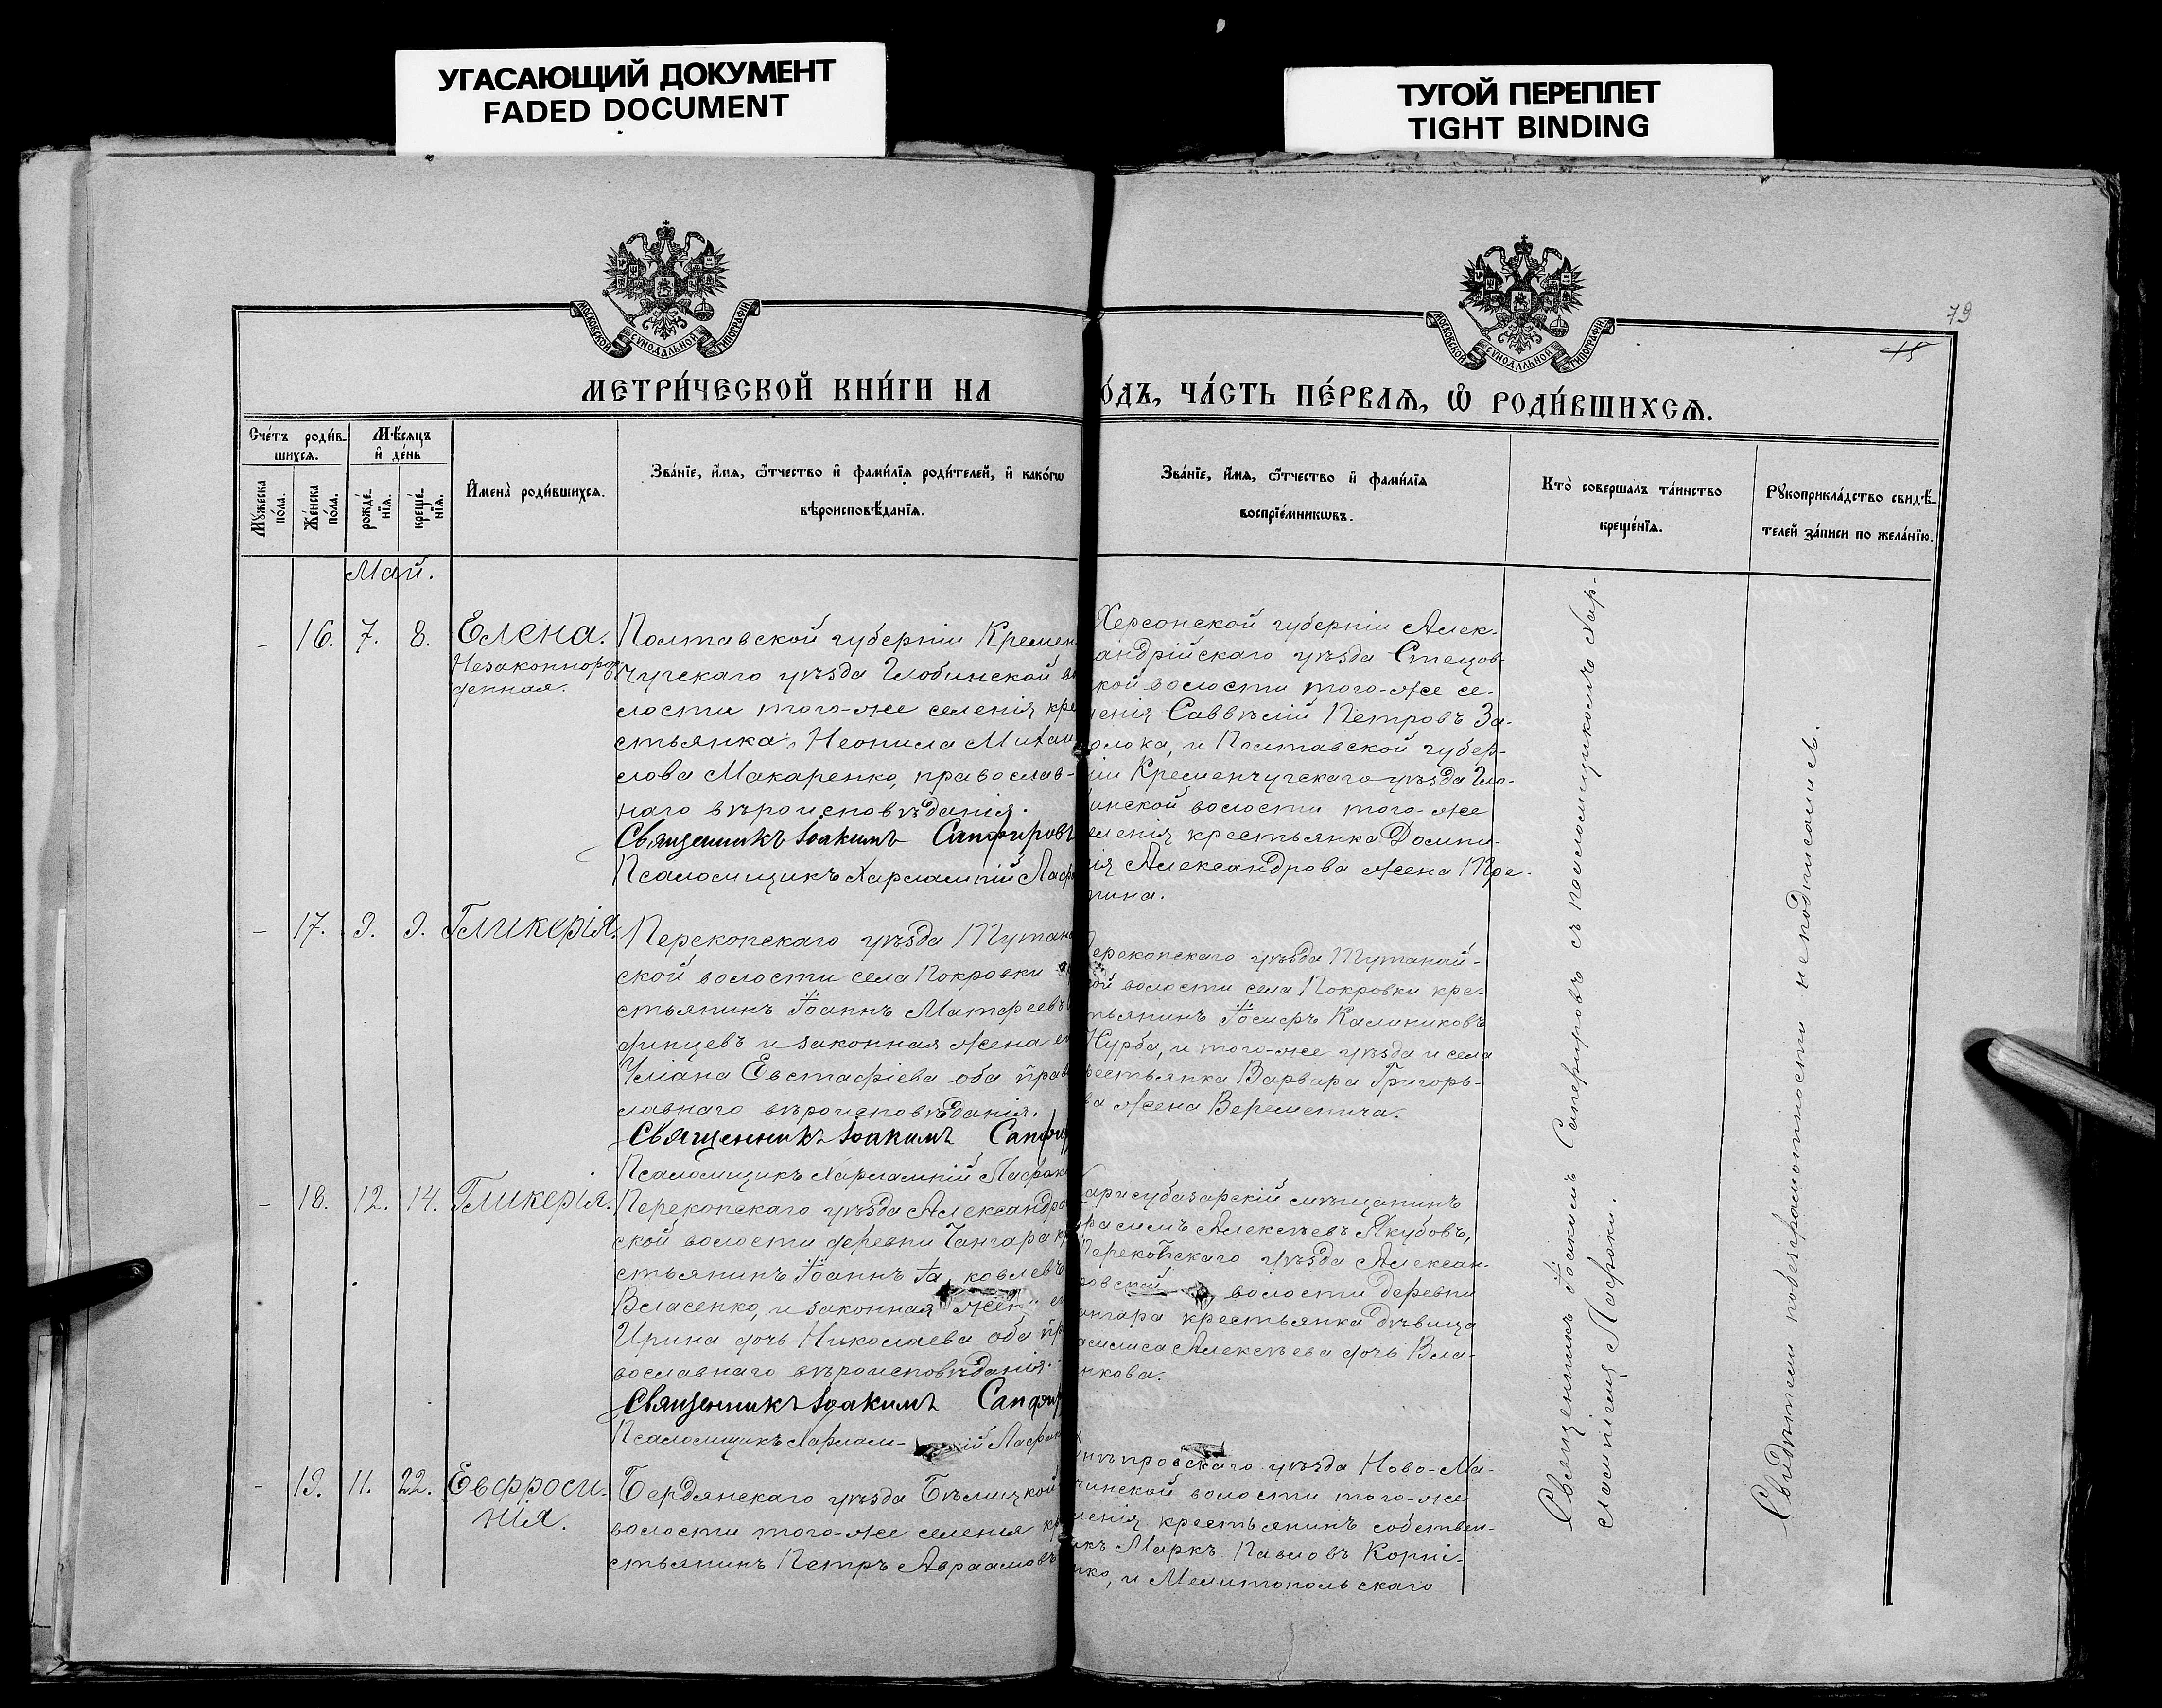 УГАСАЮЩИЙ ДОКУМЕНТ
FADED DOCUMENT
ТУГОЙ ПЕРЕПЛЕТ
TIGHT BINDING
МОСКОВСКОЙ СУНОДАЛЬНОЙ ТИПОГРАФІИ
МОСКОВСКОЙ СУНОДАЛЬНОЙ ТИПОГРАФІИ
79
15
МЕТРИ́ЧЕСКОЙ КНИ́ГИ НА
О́ДЪ, ЧА́СТЬ ПЕ́РВАѦ, Ѡ҆ РОДИ́ВШИХСѦ.
Сче́тъ роди́в-
шихсѧ.
Мѣ́сяцъ
и҆ де́нь
Му́жеска по́ла.
Же́нска по́ла.
рожде́-
нїѧ.
креще́-
нїѧ.
И҆мена̀ роди́вшихсѧ.
Зва́нїе, и҆́мѧ, ѻ҆́тчество и҆ фами́лїѧ роди́телей, и҆ како́гѡ
вѣроисповѣ́данїѧ.
Зва́нїе, и҆́мѧ, ѻ҆́тчество и҆ фами́лїѧ
воспрїе́мникѡвъ.
Кто̀ соверша́лъ та́инство
креще́нїѧ.
Рꙋкоприкла́дство свидѣ́-
телей за́писи по жела́нїю.
Май.
- 16. 7. 8. Елена.
Незаконнорож
денная.
Полтавской губерніи Кремен
чугскаго уѣзда Глобинской во
лости того-же селенія кре
стьянка, Неонила Михаи
лова Макаренко, православ-
наго вѣроисповѣданія.
Священникъ Іоакимъ Сапфировъ
Псаломщикъ Харлампій Лафо
Херсонской губерніи Алек-
андрійскаго уѣзда Стецов-
кой волости того-же се-
ленія Савватій Петровъ За-
олока, и Полтавской губер-
ніи Кременчугскаго уѣзда Гло-
инской волости того-же
еленія крестьянка Домни-
кія Александрова жена Тре-
тина.
- 17. 9. 9. Гликерія.
Перекопскаго уѣзда Тутанай
ской волости села Покровки кр
стьянинъ Іоаннъ Матфеевъ
финцевъ и законная жена е
Уліана Евстафіева оба прав
лавнаго вѣроисповѣданія.
Священникъ Іоакимъ Сапфи
Псаломщикъ Харлампій Лафок
ерекопскаго уѣзда Тутанай-
ой волости села Покровки кре-
тьянинъ Іосифъ Калиниковъ
Журба, и того-же уѣзда и села
рестьянка Варвара Григорь-
ва жена Веремеича.
- 18. 12. 14. Гликерія.
Перекопскаго уѣзда Александро
ской волости деревни Чангара кр
стьянинъ Іоаннъ Іаковлевъ
Власенко, и законная жена е
Ирина дочь Николаева оба пр
вославнаго вѣроисповѣданія.
Священникъ Іоакимъ Сапфи
Псаломщикъ Харлам- пій Лафок
арасубазарскій мѣщанинъ
расимъ Алексѣевъ Якубовъ,
Перекопскаго уѣзда Алексан-
ровской волости деревни
ангара крестьянка дѣвица
асилиса Алексѣева дочь Вла-
нкова.
- 19. 11. 22. Евфроси-
нія.
Бердянскаго уѣзда Бѣлицкой
волости того-же селенія кр
стьянинъ Петръ Авраамовъ
Днѣпровскаго уѣзда Ново-Ма-
чинской волости того-же
ленія крестьянинъ собствен-
икъ Маркъ Павловъ Корні-
нко, и Мелитопольскаго
Священникъ Іоакимъ Сапфировъ съ псаломщикомъ Хар-
лампіемъ Лафоки.
Свидѣтели по безграмотности не подписались.